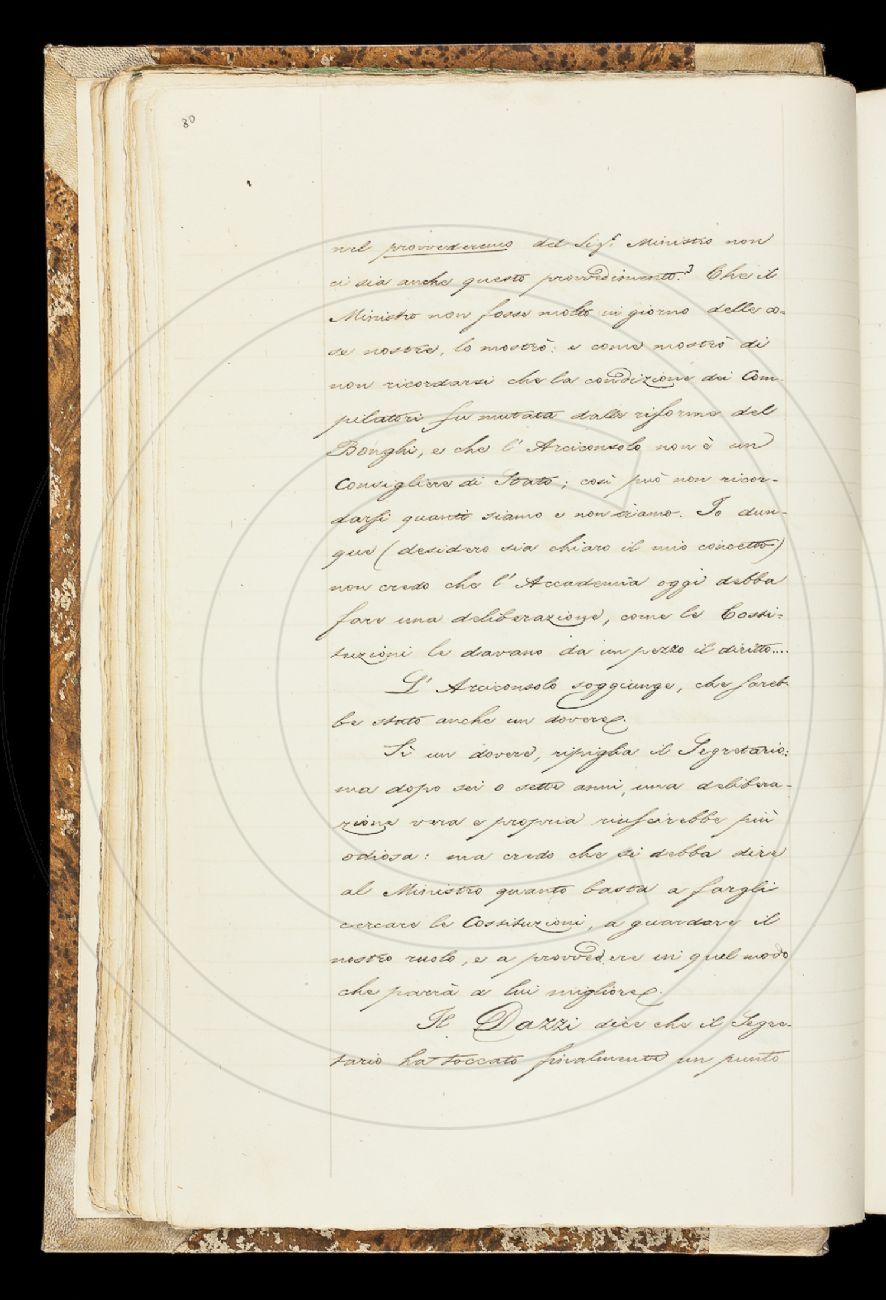 80
nel provvederemo del Sigr. Ministro non
ci sia anche questo provvedimento? Che il
Ministro non fosse molto in giorno delle co-
se nostre, lo mostrò: e come mostrò di
non ricordarsi che la condizione dei Com-
pilatori fu mutata dalla riforma del
Bonghi, e che l'Arciconsolo non è un
Consigliere di Stato; così può non ricor-
darsi quanti siamo e non siamo. Io dun-
que (desidero sia chiaro il mio concetto)
non credo che l'Accademia oggi debba
fare una deliberazione, come le Costi-
tuzioni le davano da un pezzo il diritto....
L'Arciconsolo soggiunge, che sareb-
be stato anche un dovere.
Sì un dovere, ripiglia il Segretario:
ma dopo sei o sette anni, una delibera-
zione vera e propria riuscirebbe più
odiosa: ma credo che si debba dire
al Ministro quanto basta a fargli
cercare le Costituzioni, a guardare il
nostro ruolo, e a provvedere in quel modo
che parrà a lui migliore.
Il Dazzi dice che il Segre-
tario ha toccato finalmente un punto